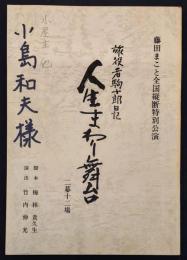 藤田まこと全国縦断特別公演
旅役者駒十郎日記
人生まわり舞台
二幕十二場
脚本 梅林貴久生
演出 竹内伸光
小島和夫様